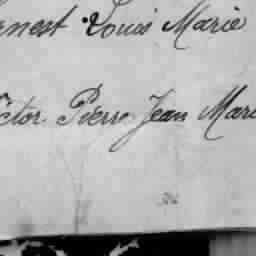 rnest Louis Marie
ctor Pierre Jean Mari